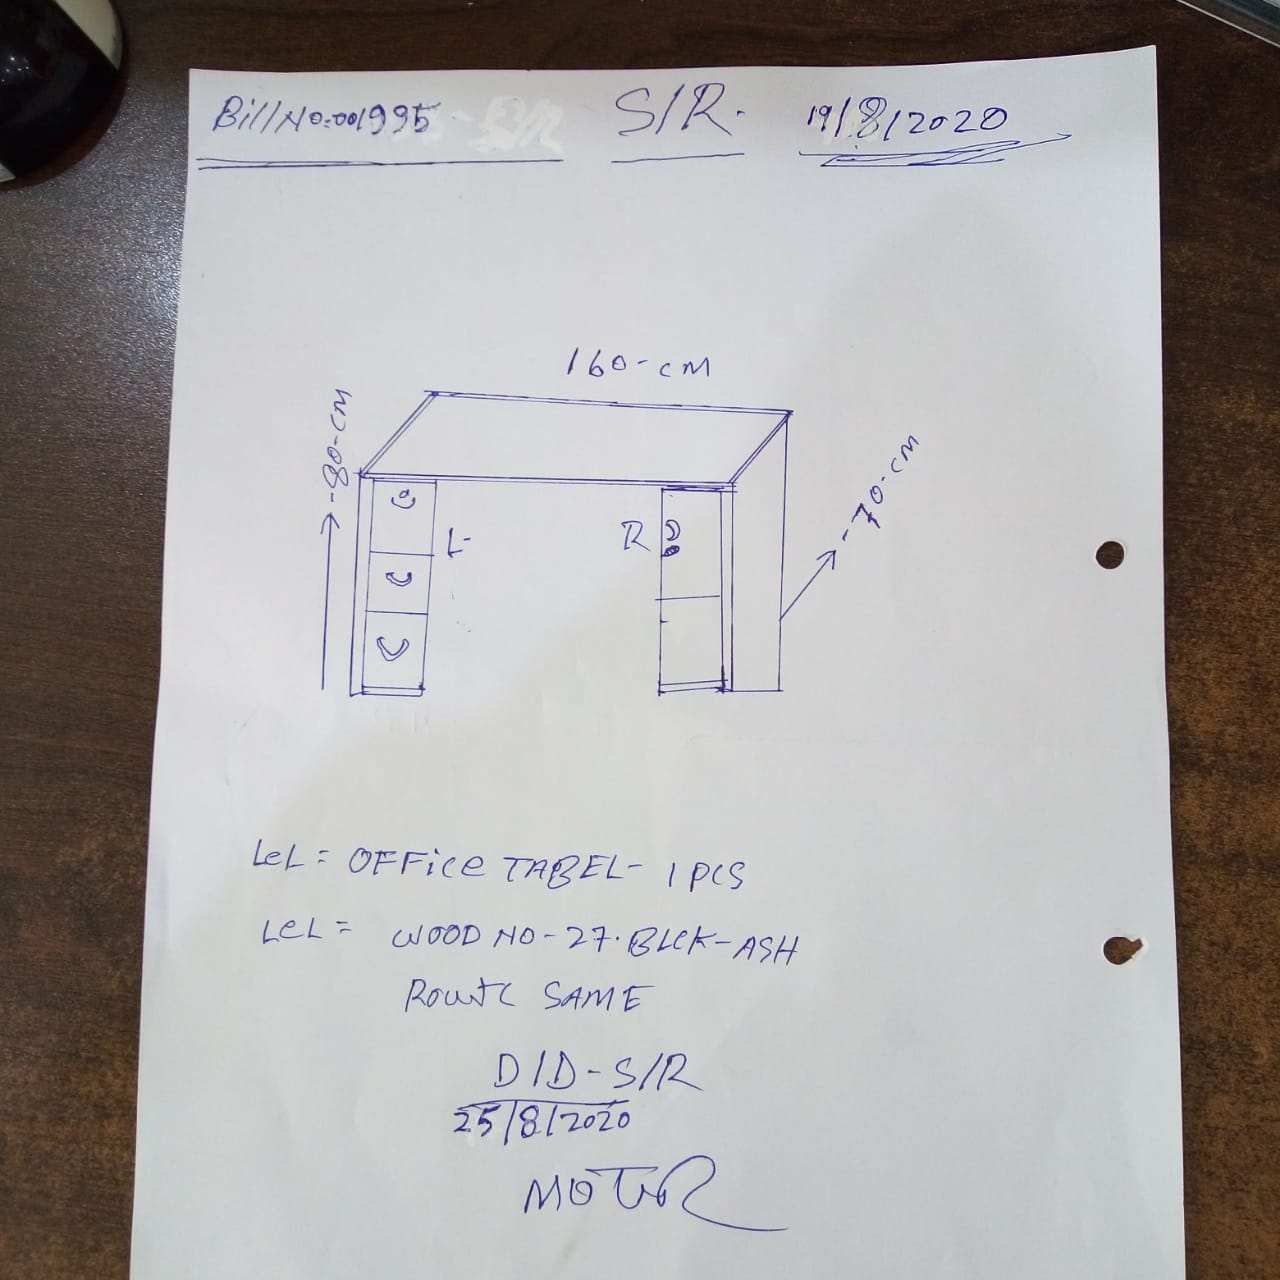 Bill No: 001995 S/R. 19/8/2020
160-CM
80-CM
L
R
70-CM
LeL = OFFice TABEL- 1 PCS
LeL = WOOD NO-27. BLCK-ASH
SAME
D/D-S/R
25/8/2020